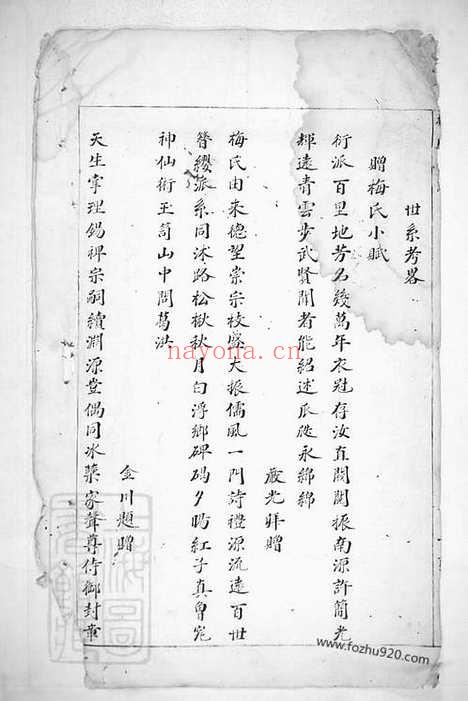 世系考畧
贈梅氏小賦
衍派百里地芳名幾萬年衣冠存汝直閥閱振南源許簡光
輝遠青雲步武賢聞者能紹述瓜瓞永綿綿
嚴光拜贈
梅氏由來德望崇宗枝蕃大振儒風一門詩禮源流遠百世
簪纓派系同沭路松楸秋月白浮鄉碑碣夕陽紅子真曾究
神仙術玉笥山中問葛洪
金川題贈
天生掌理錫裨宗嗣續淵源豈偶同冰檗家聲尊侍御封章
nayona.cn
www.fozhu920.com